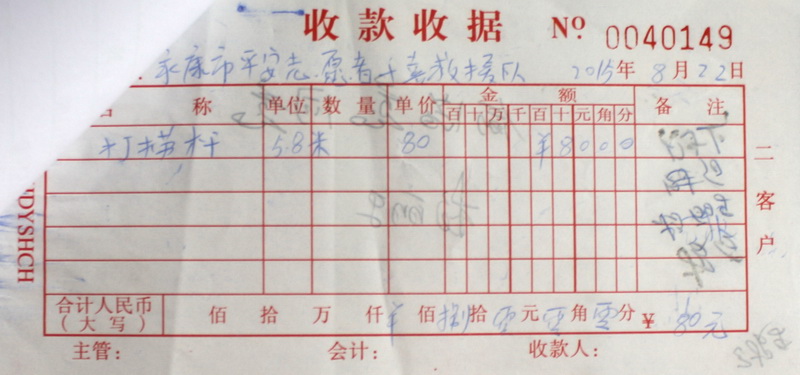 收款收据 No 0040149
永康市平安志愿者千喜救援队 2015年8月22日
名称 单位 数量 单价 金额 备注
百 十 万 千 百 十 元 角 分
打横杆 5.8米 80 ¥8000
二客户
UDYSHCH
合计人民币（大写） 佰 拾 万 仟 ¥ 佰 捌 拾 零 元 零 角 零 分 ¥ 80元
主管： 会计： 收款人：